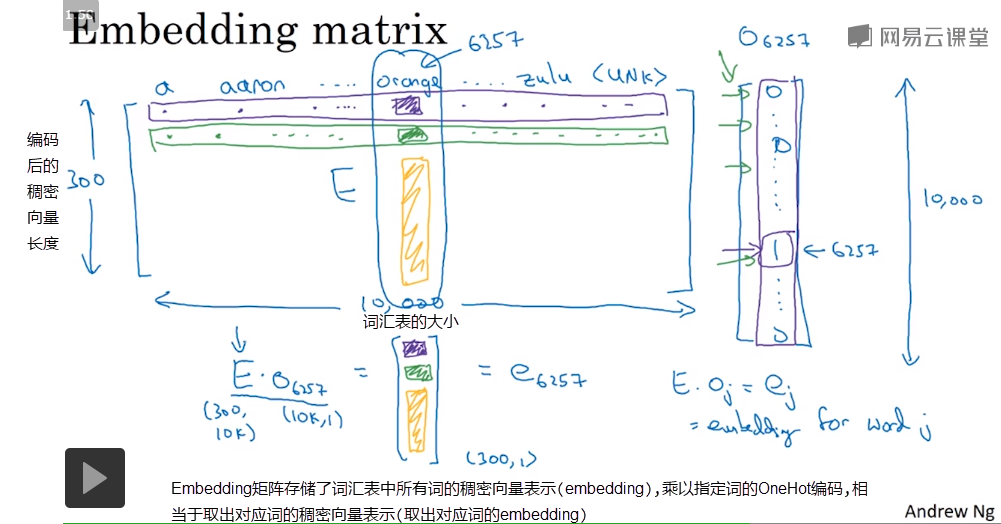 1:50
Embedding matrix
网易云课堂
6257
O6257
a aaron ..... orange ..... zulu <UNK>
编码
后的
稠密
向量
长度
300
E
10,000
6257
10,000
词汇表的大小
E · O6257 = [ ] = e6257
(300, 10K) (10K, 1)
(300, 1)
0
0
1
0
E · Oj = ej
= embedding for word j
Embedding矩阵存储了词汇表中所有词的稠密向量表示(embedding),乘以指定词的OneHot编码,相
当于取出对应词的稠密向量表示(取出对应词的embedding)
Andrew Ng